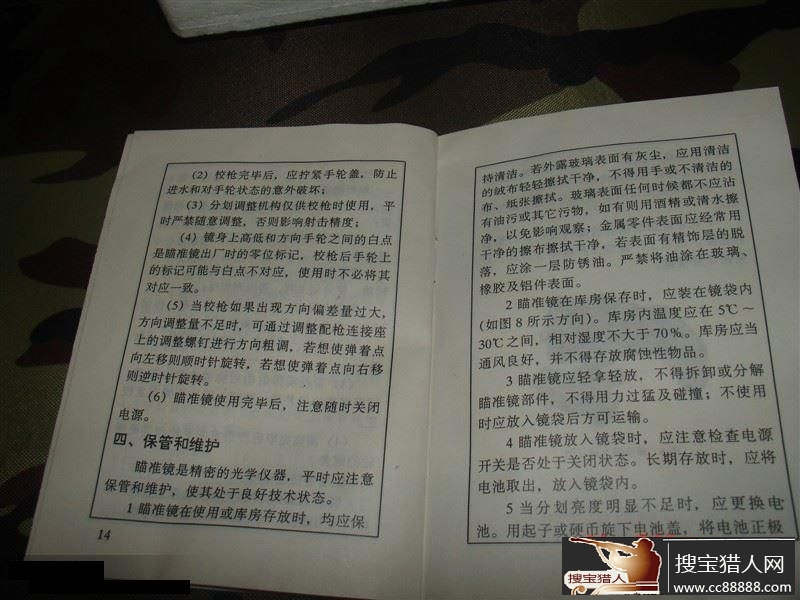 (2) 校枪完毕后，应拧紧手轮盖，防止
进水和对手轮状态的意外破坏；
(3) 分划调整机构仅供校枪时使用，平
时严禁随意调整，否则影响射击精度；
(4) 镜身上高低和方向手轮之间的白点
是瞄准镜出厂时的零位标记，校枪后手轮上
的标记可能与白点不对应，使用时不必将其
对应一致。
(5) 当校枪如果出现方向偏差量过大，
方向调整量不足时，可通过调整配枪连接座
上的调整螺钉进行方向粗调，若想使弹着点
向左移则顺时针旋转，若想使弹着点向右移
则逆时针旋转。
(6) 瞄准镜使用完毕后，注意随时关闭
电源。
四、保管和维护
瞄准镜是精密的光学仪器，平时应注意
保管和维护，使其处于良好技术状态。
1 瞄准镜在使用或库房存放时，均应保
14
持清洁。若外露玻璃表面有灰尘，应用清洁
的绒布轻轻擦拭干净，不得用手或不清洁的
布、纸张擦拭。玻璃表面任何时候都不应沾
有油污或其它污物，如有则用酒精或清水擦
净，以免影响观察；金属零件表面应经常用
干净的擦布擦拭干净，若表面有精饰层的脱
落，应涂一层防锈油。严禁将油涂在玻璃、
橡胶及铝件表面。
2 瞄准镜在库房保存时，应装在镜袋内
(如图 8 所示方向)。库房内温度应在 5℃～
30℃之间，相对湿度不大于 70%。库房应当
通风良好，并不得存放腐蚀性物品。
3 瞄准镜应轻拿轻放，不得拆卸或分解
瞄准镜部件，不得用力过猛及碰撞；不使用
时应放入镜袋后方可运输。
4 瞄准镜放入镜袋时，应注意检查电源
开关是否处于关闭状态。长期存放时，应将
电池取出，放入镜袋内。
5 当分划亮度明显不足时，应更换电
池。用起子或硬币旋下电池盖，将电池正极
搜宝猎人
搜宝猎人网
www.cc88888.com